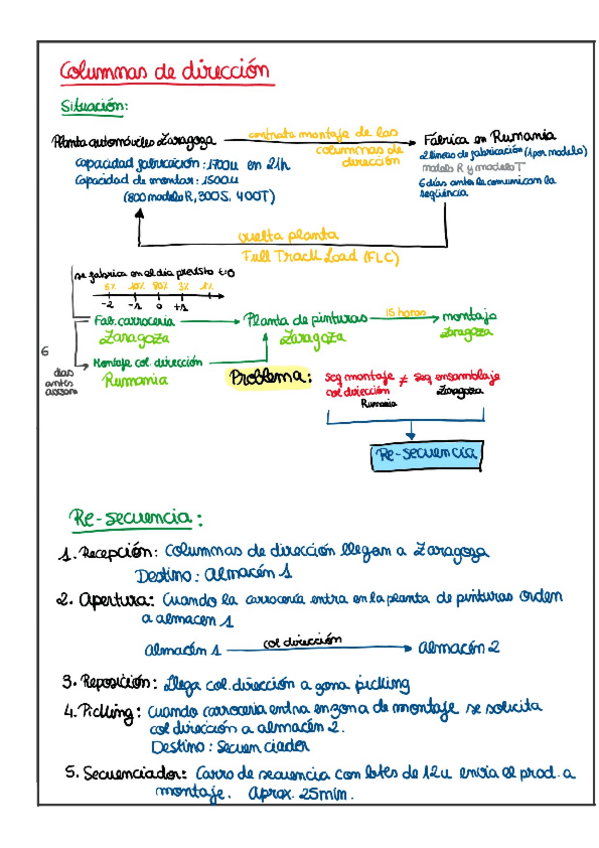 Columnas de dirección
Situación:
Planta automóviles Zaragoza
contrata montaje de las
columnas de
dirección
Fábrica en Rumania
2 líneas de fabricación (1 por modelo)
modelo R y modelo T
6 días antes le comunican la
seqüència
capacidad fabricación: 1700u en 21h
Capacidad de montar: 1500u
(800 modelo R, 300S, 400T)
vuelta planta
Full Track Load (FLC)
se fabrica en el día previsto t=0
5% 10% 80% 3% 1%
-2 -1 0 +1
Fab. carrocería
Zaragoza
Planta de pinturas
Zaragoza
15 horas
montaje
Zaragoza
6
días
antes
Montaje col. dirección
Rumania
Problema:
seq montaje ≠ seq ensamblaje
col dirección
Rumania
Zaragoza
Re-secuencia
Re-secuencia:
1. Recepción: Columnas de dirección llegan a Zaragoza
Destino: Almacén 1
2. Apertura: Cuando la carrocería entra en la planta de pinturas orden
a almacen 1
Almacén 1
col dirección
Almacén 2
3. Reposición: Llega col. dirección a zona picking
4. Picking: cuando carroceria entra en zona de montaje se solicita
col dirección a almacén 2.
Destino: Secuenciador
5. Secuenciador: Carro de secuencia con lotes de 12u envia el prod. a
montaje. Aprox. 25 min.